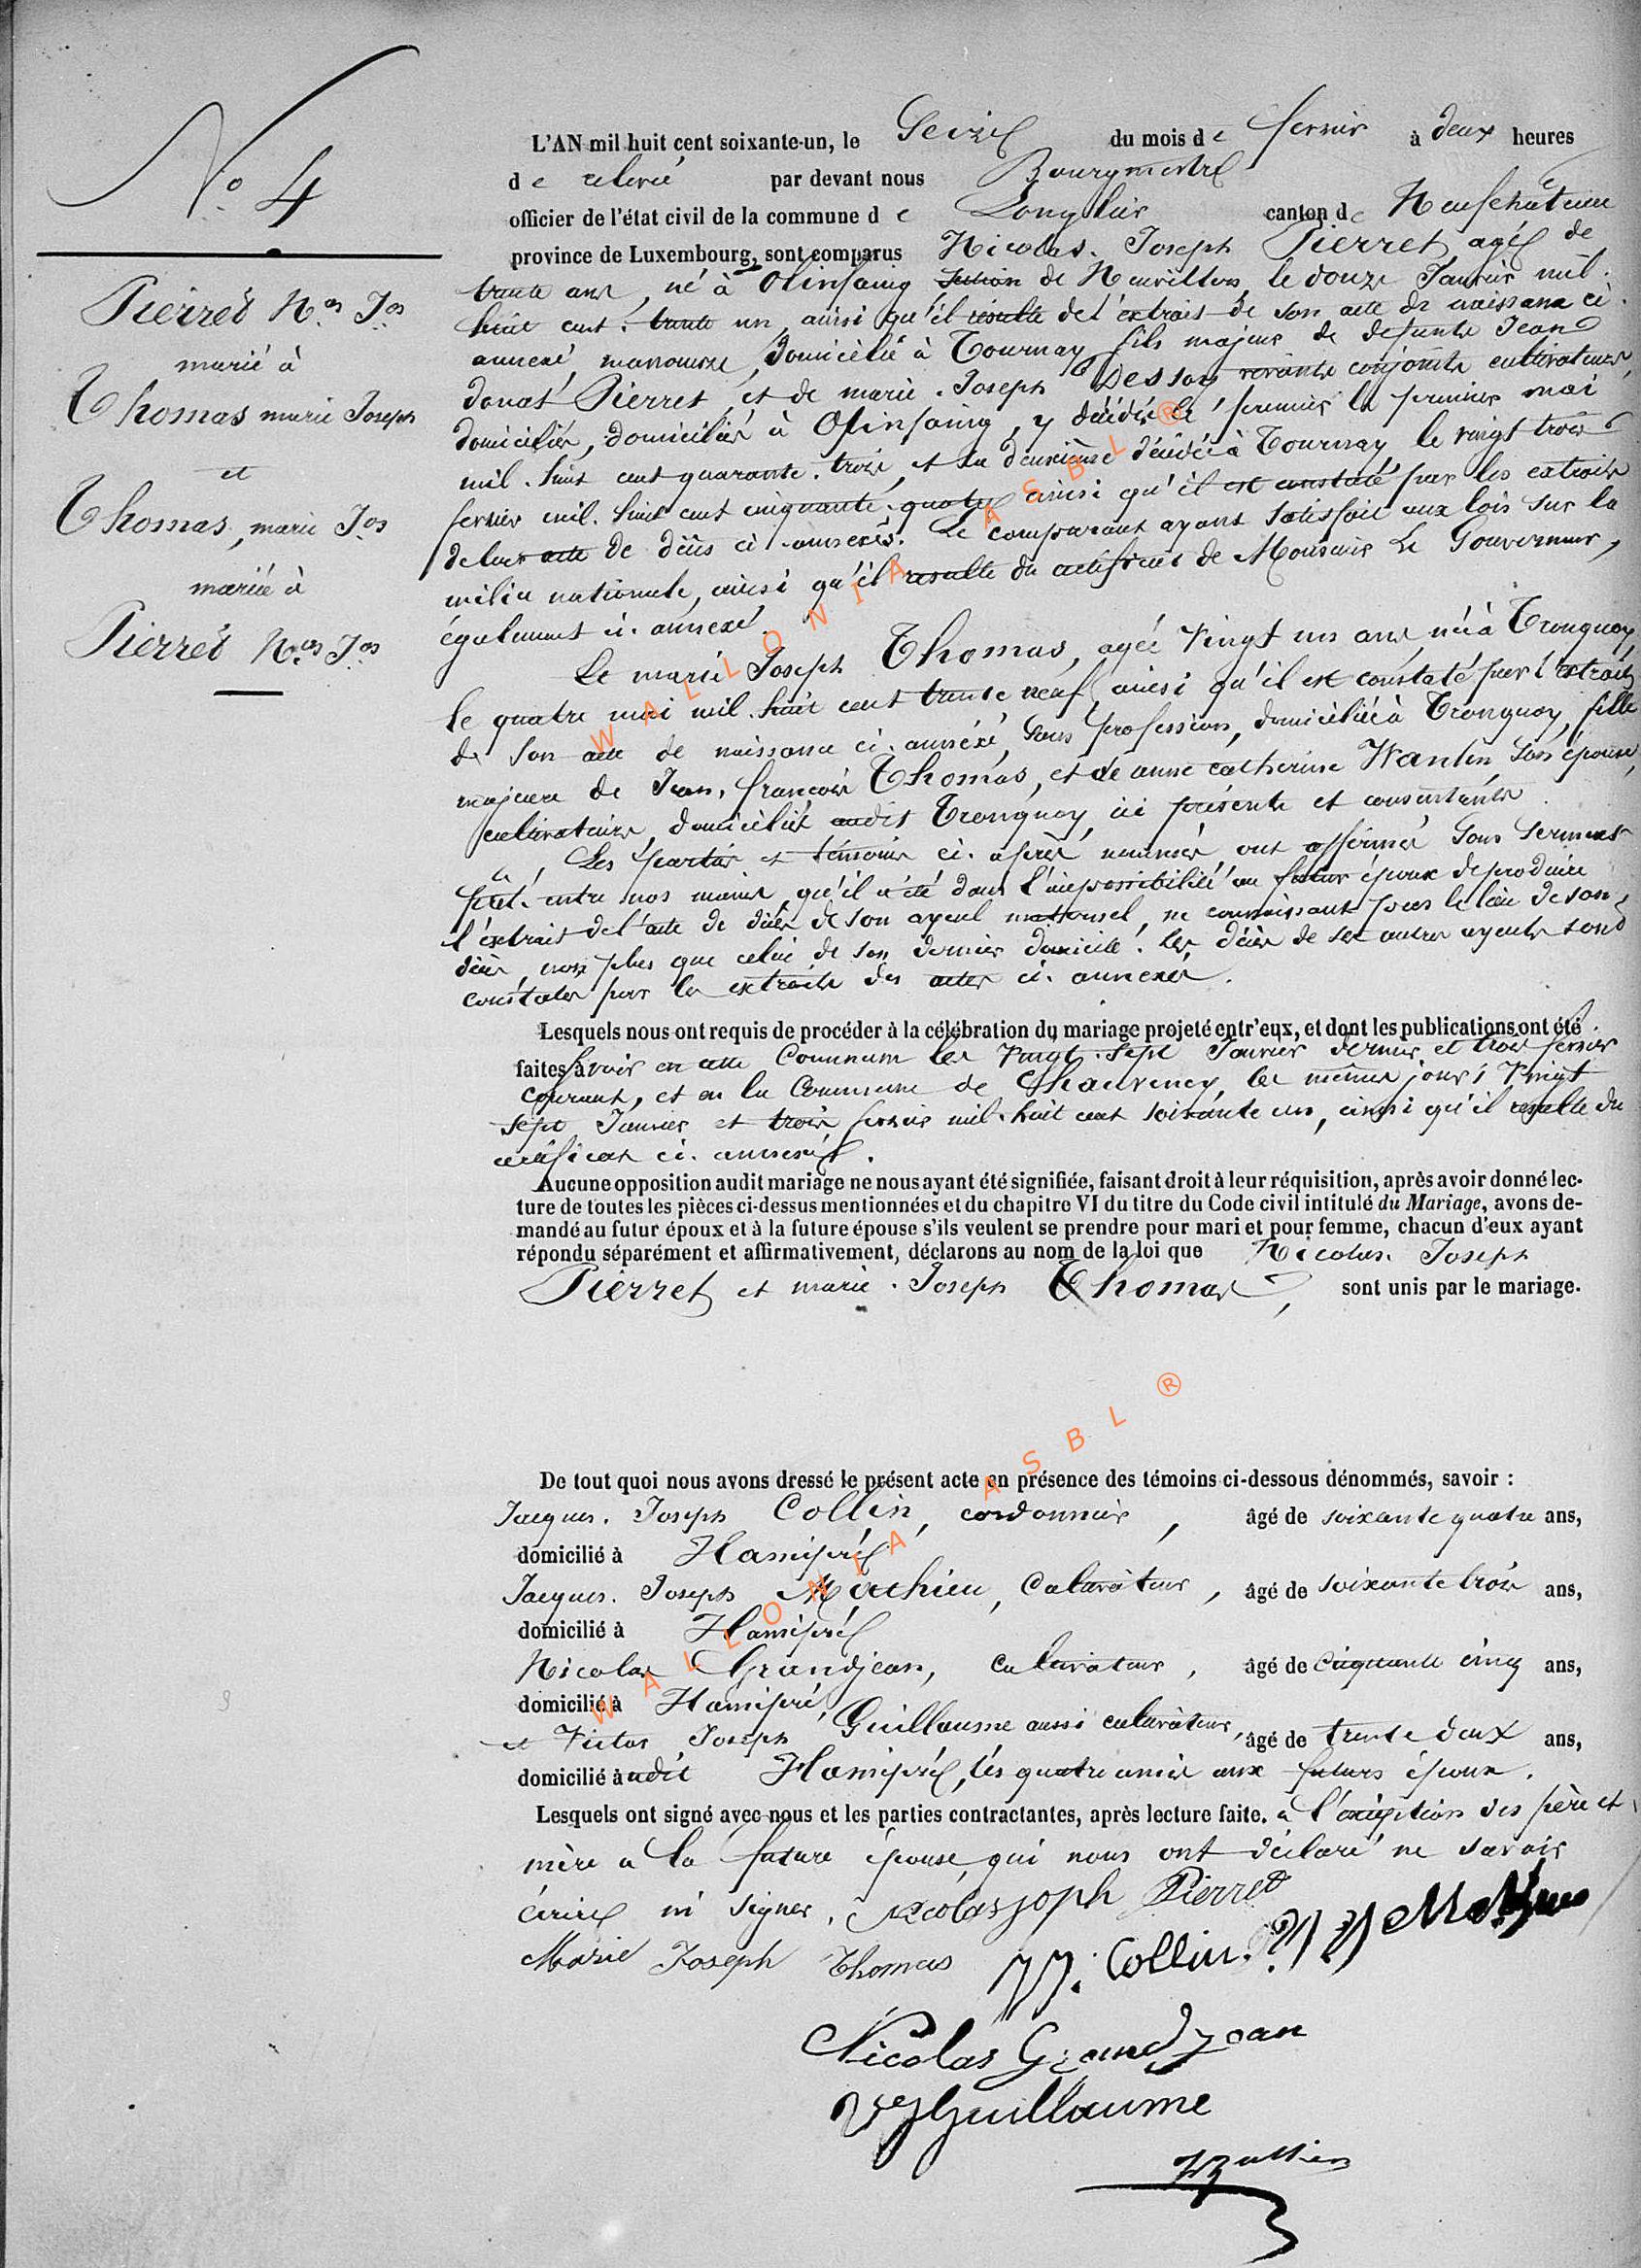 N.o 4
Pierret N.as J.os
marié à
Thomas marie Joseph
et
Thomas, marie J.os
mariée à
Pierret N.as J.os
L'AN mil huit cent soixante-un, le Seize du mois de fevrier à deux heures
de relevée par devant nous Bourgmestre
officier de l'état civil de la commune de Longlier canton de Neufchâteau
province de Luxembourg, sont comparus Nicolas. Joseph Pierret agé de
trente ans, né à Offinfaing de le douze Janvier mil.
huit cent. trente un, ainsi qu'il résulte de l'extrait de son acte de naissance ci.
annexé, manouvre, domicilié à Tournay fils majeur de defunts Jean
donat Pierret et de marie. Joseph Dessoy conjoints cultivateurs,
domiciliés, domiciliés à Offinfaing, y décédé le premier le premier mai
mil. huit cent quarante. trois, et la deuxième décédée à Tournay le vingt trois
fevrier mil. huit cent cinquante. quatre ainsi qu'il est constaté par les extraits
de leur acte de décès ci annexés. Le comparant ayant satisfait aux lois sur la
milice nationale, ainsi qu'il resulte du certificat de Monsieur Le Gouverneur,
également ci. annexé.
Et marie Joseph Thomas, agée vingt un ans, née à Tronquoy,
le quatre mai mil. huit cent trente neuf, ainsi qu'il est constaté par l'extrait
de son acte de naissance ci. annexé, sans profession, domiciliée à Tronquoy, fille
majeure de Jean. françois Thomas, et de anne catherine Wanlin son épouse,
cultivateurs, domiciliés audit Tronquoy, ici présents et consentants.
Les parties et témoins ci. après nommés ont affirmé sous serment
prêté. entre nos mains, qu'il a été dans l'impossibilité au futur époux de produire
l'extrait de l'acte de décès de son ayeul maternel, ne connaissant pas le lieu de son
décès, non plus que celui de son dernier domicile. les décès de ses autres ayeuls sont
constatés par les extraits des actes ci. annexés.
Lesquels nous ont requis de procéder à la célébration du mariage projeté entr'eux, et dont les publications ont été
faites savoir en cette Commune les vingt. sept Janvier dernier et trois fevrier
courant, et en la Commune de les mêmes jours vingt
sept Janvier et trois fevrier mil. huit cent soixante un, ainsi qu'il resulte du
certificat ci. annexé.
Aucune opposition audit mariage ne nous ayant été signifiée, faisant droit à leur réquisition, après avoir donné lec-
ture de toutes les pièces ci-dessus mentionnées et du chapitre VI du titre du Code civil intitulé du Mariage, avons de-
mandé au futur époux et à la future épouse s'ils veulent se prendre pour mari et pour femme, chacun d'eux ayant
répondu séparément et affirmativement, déclarons au nom de la loi que Nicolas. Joseph
Pierret et marie. Joseph Thomas, sont unis par le mariage.
De tout quoi nous avons dressé le présent acte en présence des témoins ci-dessous dénommés, savoir :
Jacques. Joseph Collin, cordonnier, âgé de soixante quatre ans,
domicilié à Hamipré
Jacques. Joseph Mathieu, Cultivateur, âgé de soixante trois ans,
domicilié à Hamipré
Nicolas Grandjean, cultivateur, âgé de cinquante cinq ans,
domicilié à Hamipré,
et Victor Joseph Guillaume aussi cultivateur, âgé de trente deux ans,
domicilié audit Hamipré, tés quatre amis aux futurs époux.
Lesquels ont signé avec nous et les parties contractantes, après lecture faite. à l'exception des père et
mère à la future épouse qui nous ont déclaré ne savoir
écrire ni signer. Nicolas joseph Pierret
Marie Joseph Thomas JJ. Collin.
Nicolas Grandjean
VJ Guillaume
WALLONIA ASBL ®
WALLONIA ASBL ®